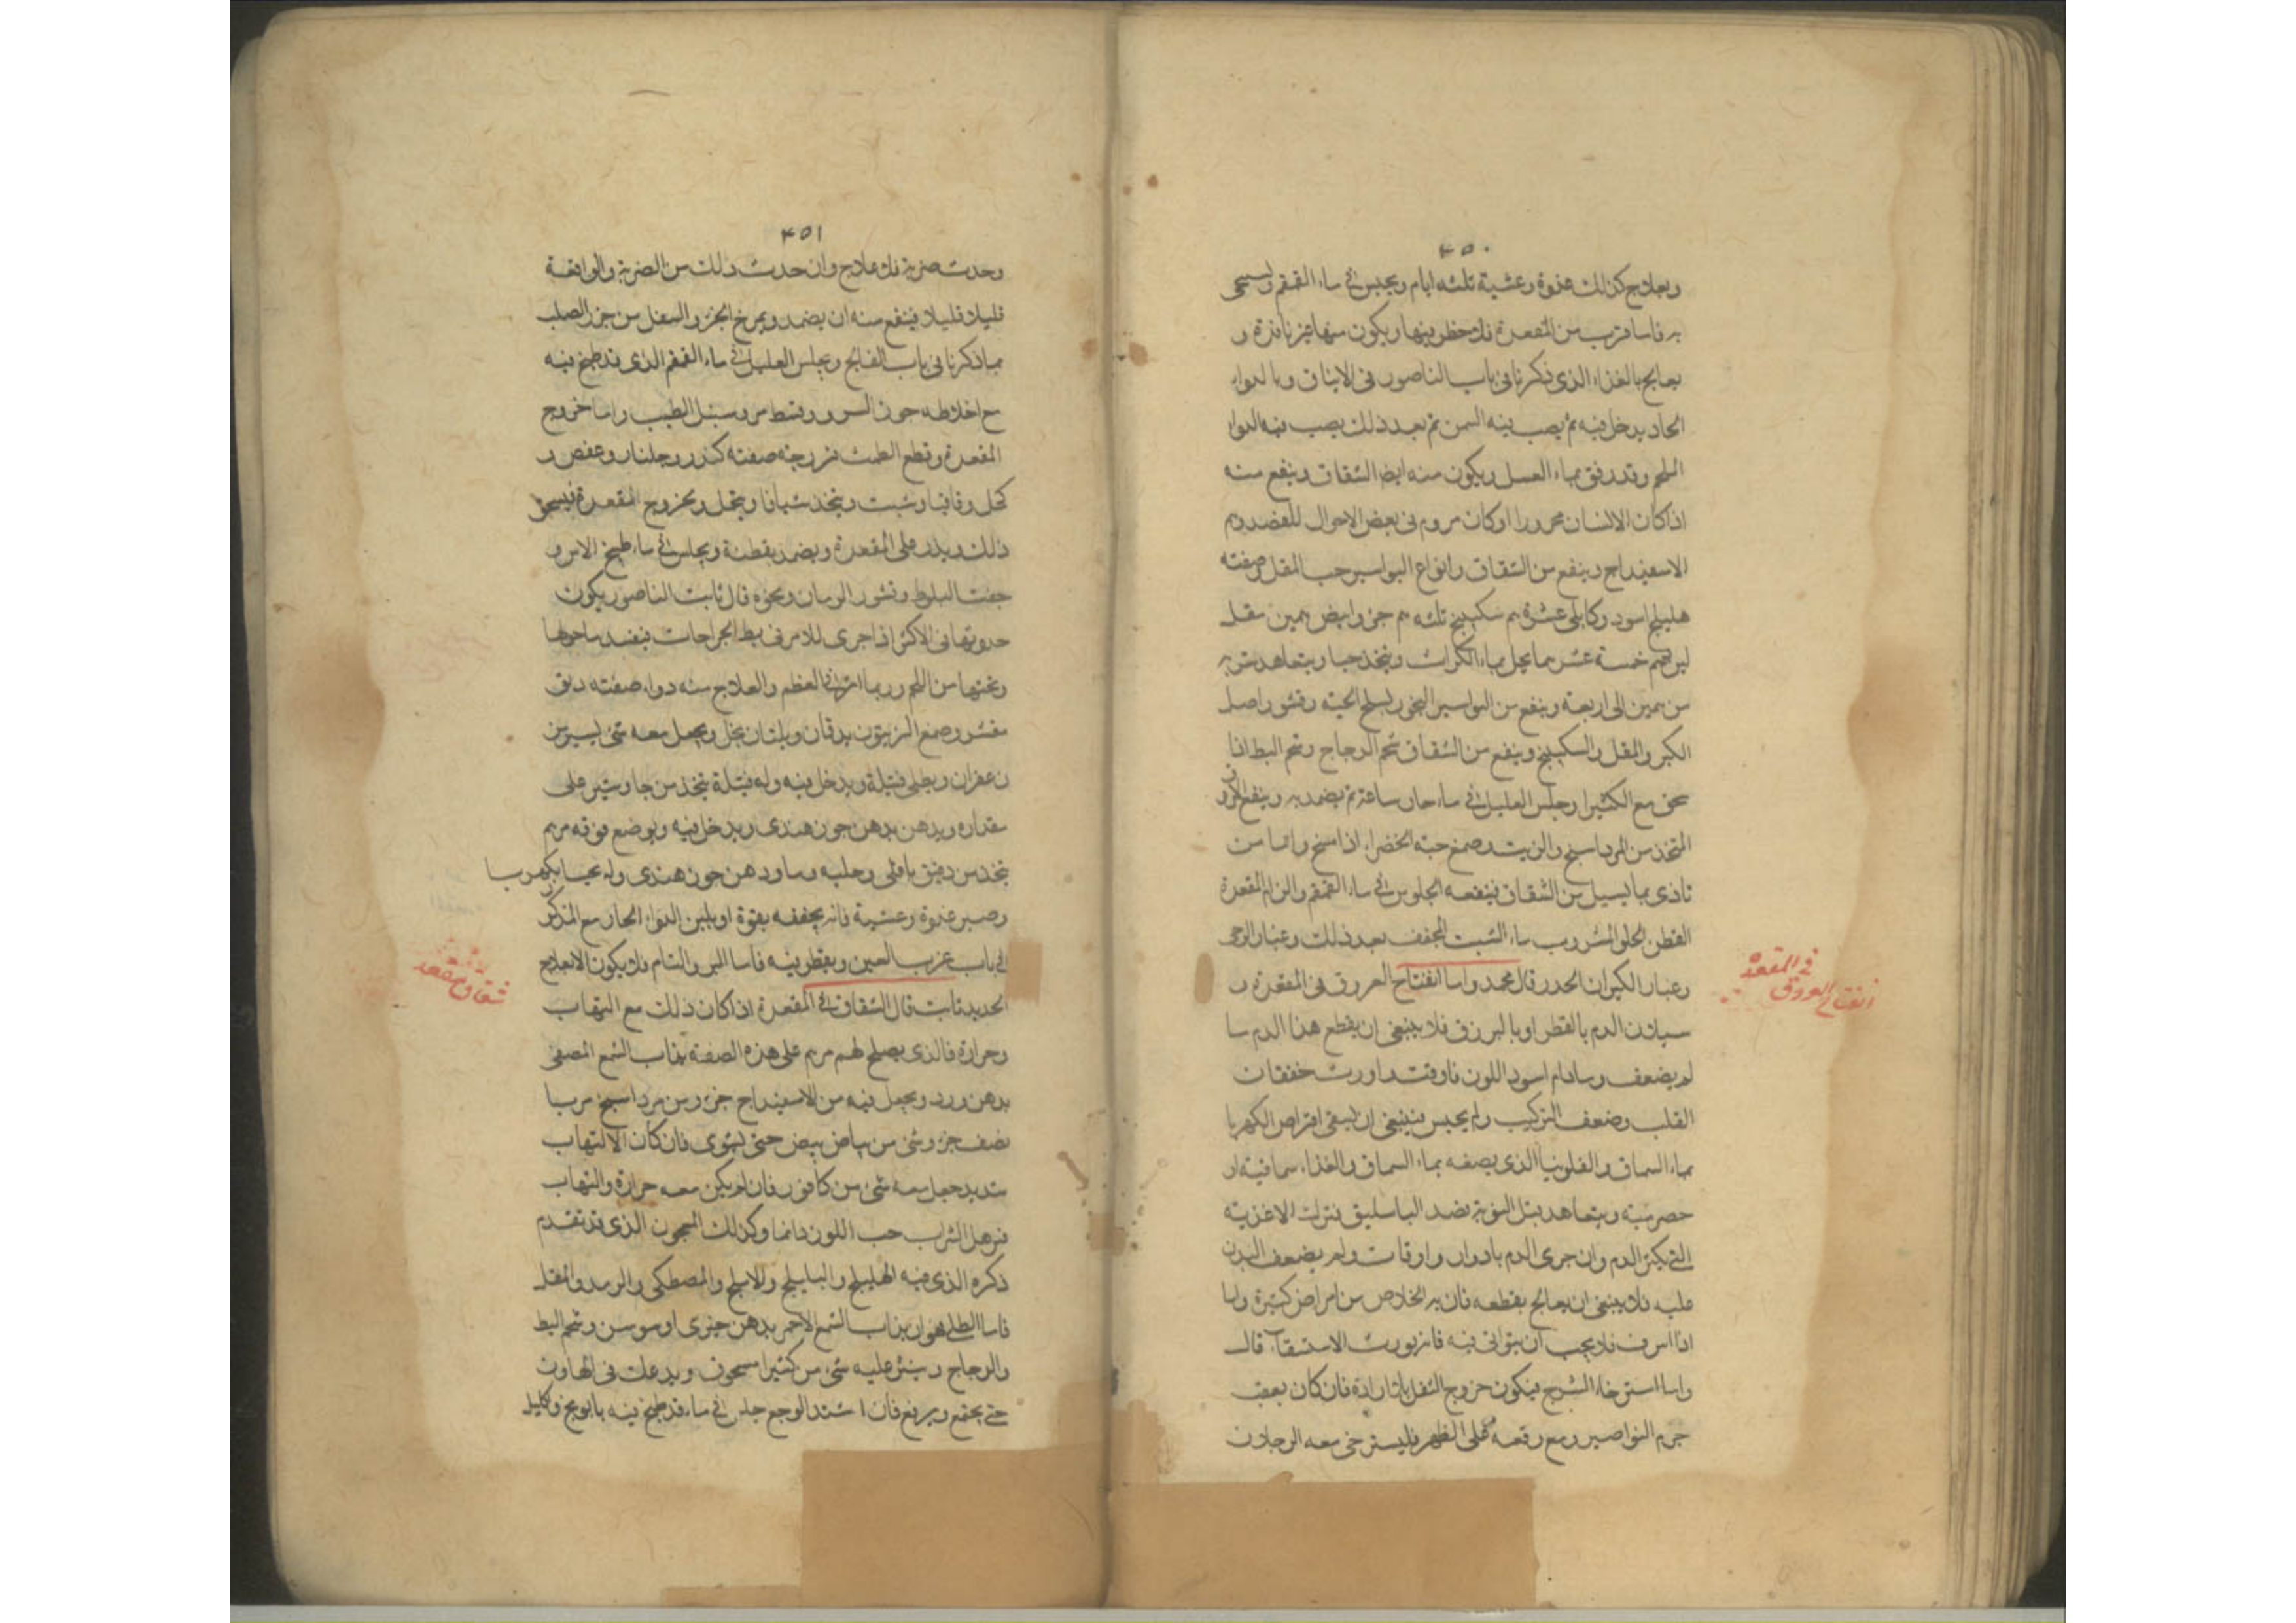 ٤٥٠
ويعالج كذلك غدوة وعشية ثلثه ايام ويجلس في ماء القمقم ويسمى
به فاما قرب من المقعدة فلا خطر فيها ويكون منها غير نافذة و
يعالج بالغذاء الذى ذكرنا فى باب الناصور فى الاماق وبالدواء
الحاد يدخل فيه ثم يصب فيه السمن ثم بعد ذلك يصب فيه الدواء
الملحم وقد رفق بماء العسل ويكون منه ايضا الشقاق وينفع منه
اذا كان الانسان محرورا او كان مروم فى بعض الاحوال للفصد ومرهم
الاسفيداج وينفع من الشقاق وانواع البواسير حب المقل وصفته
هليلج اسود وكابلى عشرة سكبينج ثلثه حرف ابيض مقل
لين خمسة عشر يحل بماء الكراث ويتخذ حبا ويتعاهد شربه
من الى اربعة وينفع من البواسير البخور بسلخ الحية وقشور اصل
الكبر والمقل والسكبينج وينفع من الشقاق شحم الدجاج وشحم البط اذا
سحق مع الكثيرا وجلس العليل في ماء حار ساعة ثم يضمد به وينفع
المتخذ من المرداسنج والزيت وصمغ حبة الخضراء اذا سخ واما من
تاذى بما يسيل من الشقاق فينفعه الجلوس في ماء القمقم والزام المقعدة
القطن الخلق المشروب ماء الشبت المجفف بعد ذلك وغبار الرحى
وغبار الكيزان الجدد قال محمد واما انفتاح العروق فى المقعدة و
سيلان الدم بالقطر او بالبزق فلا ينبغى ان يقطع هذا الدم ما
لم يضعف وما دام اسود اللون فاوقت اورث خفقان
القلب وضعف التركيب ولم يحبس فينبغى ان يسقى اقراص الكهربا
بماء السماق والفلونيا الذى يصفه بماء السماق والغذاء سماقية او
حصرمية ويتعاهد قبل النوبة فصد الباسليق وترك الاغذية
التى يكثر الدم وان جرى الدم بادوار واوقات ولم يضعف البدن
عليه فلا ينبغى ان يعالج بقطعه فان به الخلاص من امراض كثيرة واما
اذا اسرف فلا يجب ان يتوانى فيه فانه يورث الاستسقاء قال
واما استرخاء الشرج فيكون خروج الثفل بلا ارادة فان كان بعقب
خرم النواصير ومع وقعة على الظهر فليسترخى معه الرجلان
فى المقعدة
انفتاح العروق
٤٥١
وحدث ضربة فلا علاج وان حدث ذلك من الضربة والواقعة
قليلا قليلا فينفع منه ان يضمد ويمرخ الجزو السفل من خرز الصلب
بما ذكرنا فى باب الفالج ويجلس العليل في ماء القمقم الذى قد طبخ فيه
مع اخلاطه جوز السرو وقسط مر وسنبل الطيب واما خروج
المقعدة وقطع الطمث فرزجة صفته كندر وجلنار وعفص و
كحل وقاقيا وشبت ويتخذ شيافا ويتحمل ولخروج المقعدة يسحق
ذلك ويذر على المقعدة ويضمد بقطنة ويجلس في ماء طبيخ الاس و
جفت البلوط وقشور الرمان ونحوه قال ثابت الناصور يكون
حدوثها فى الاكثر اذا جرى للامر فى بط الجراحات فيفسد ما حولها
وتحتها من اللحم وربما اثر في العظم والعلاج منه دواء صفته دبق
مقشر وصمغ الزيتون يدقان ويلتان بخل ويجعل معه شئ يسير من
زعفران ويطلى فتيلة ويدخل فيه وله فتيلة يتخذ من جاوشير على
مقداره ويدهن بدهن جوز هندى ويدخل فيه ويوضع فوقه مرهم
يتخذ من دقيق باقلى وحلبه وماء ودهن جوز هندى وله بكهربا
وصبر غدوة وعشية فانه يجففه بقوة او بلين الدواء الحار مع المذكور
في باب غرب العين ويقطر فيه فاما البرء التام فلا يكون الا بعلاج
الحديد ثابت قال الشقاق في المقعدة اذا كان ذلك مع التهاب
وحرارة فالذى يصلح لهم مرهم على هذه الصفة يذاب الشمع المصفى
بدهن ورد ويجعل فيه من الاسفيداج جزو ومن مرداسنج مربا
نصف جزو وشئ من بياض بيض حتى يستوى فان كان الالتهاب
شديد جعل معه شئ من كافور فان لم يكن معه حرارة والتهاب
الشراب حب اللون دائما وكذلك المعجون الذى قد تقدم
ذكره الذى فيه الهليلج والبليلج والاملج والمصطكى والرمد والمقل
فاما الطلى فهو ان يذاب الشمع الاحمر بدهن خيرى او سوسن وشحم البط
والدجاج وينثر عليه شئ من كثيرا مسحوق ويدعك فى الهاون
حتى يجتمع ويرفع فان اشتد الوجع جلس في ماء قد طبخ فيه بابونج واكليل
شقاق مقعد